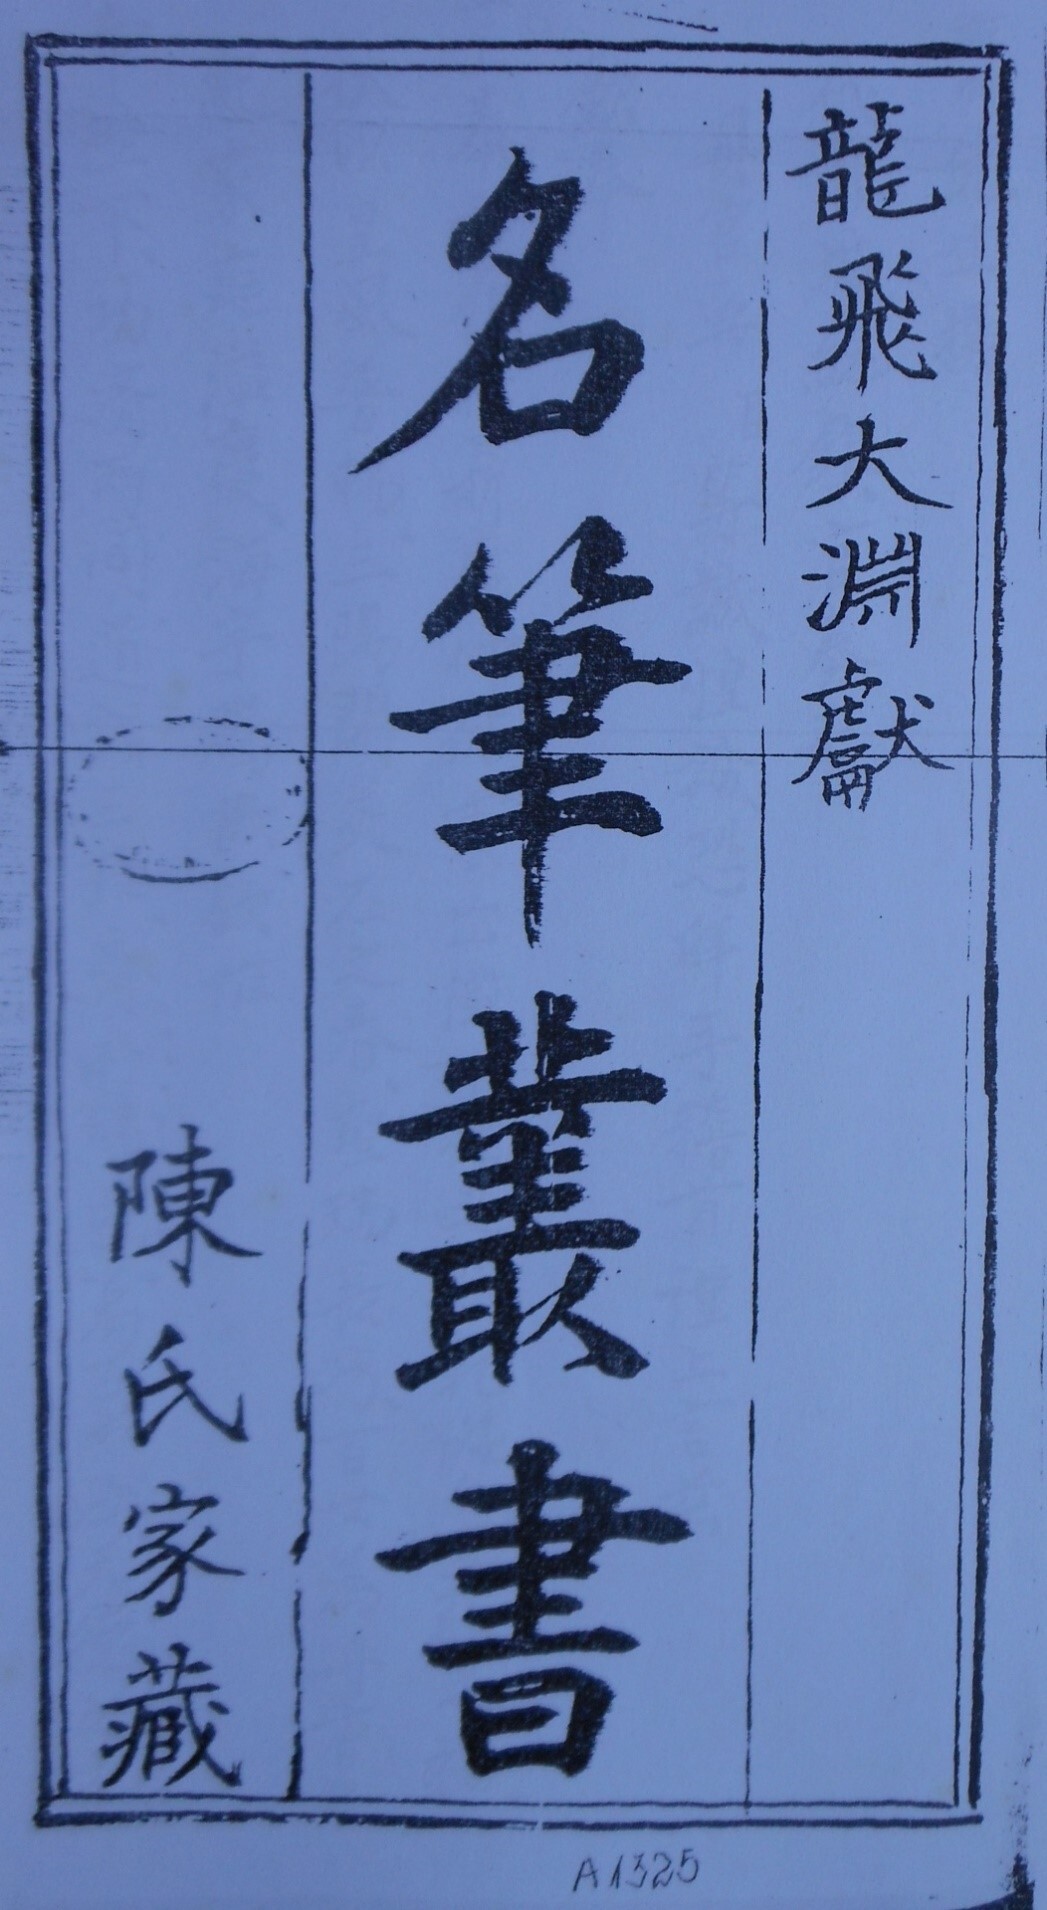 龍飛大淵獻
名筆叢書
陳氏家藏
A1325